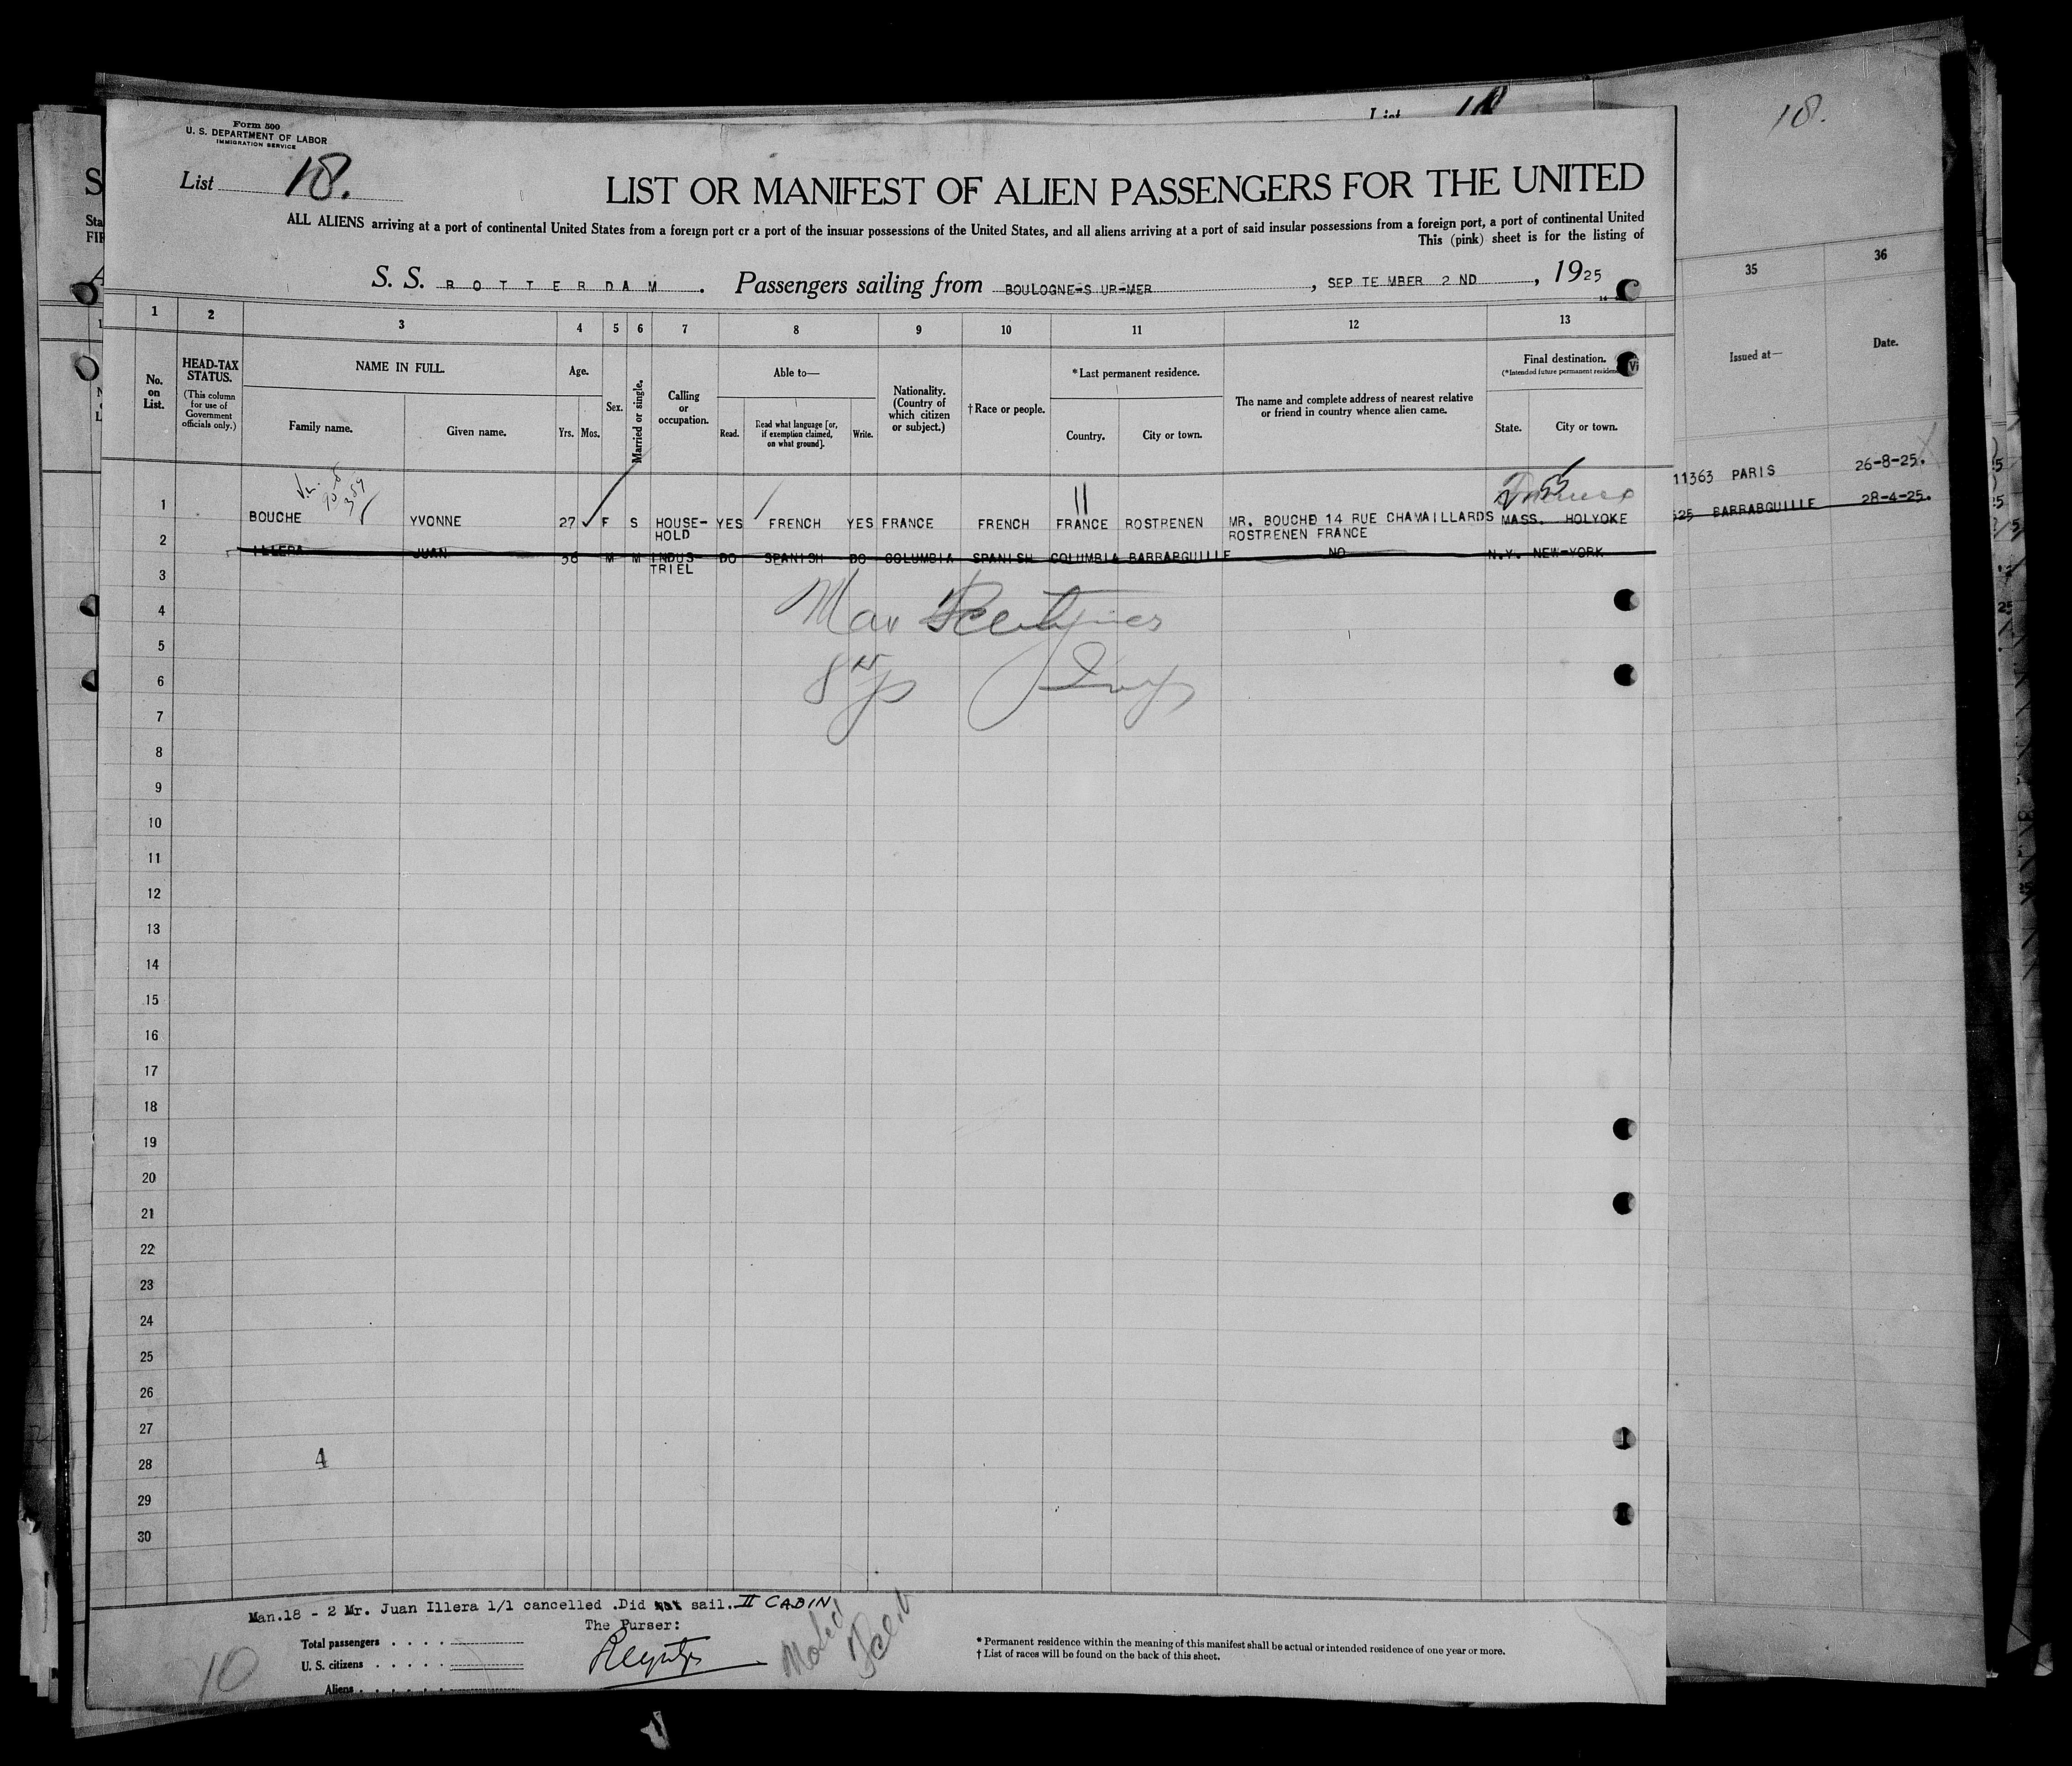 18.
Form 500
U. S. DEPARTMENT OF LABOR
IMMIGRATION SERVICE
List 18.
LIST OR MANIFEST OF ALIEN PASSENGERS FOR THE UNITED
ALL ALIENS arriving at a port of continental United States from a foreign port or a port of the insular possessions of the United States, and all aliens arriving at a port of said insular possessions from a foreign port, a port of continental United
This (pink) sheet is for the listing of
S. S. ROTTERDAM. Passengers sailing from BOULOGNE-SUR-MER, SEPTEMBER 2ND, 1925
1 2 3 4 5 6 7 8 9 10 11 12 13 35 36
No. on List.
HEAD-TAX STATUS.
(This column for use of Government officials only.)
NAME IN FULL.
Family name. Given name.
Age.
Yrs. Mos.
Sex.
Married or single.
Calling or occupation.
Able to—
Read. Read what language [or, if exemption claimed, on what ground]. Write.
Nationality. (Country of which citizen or subject.)
†Race or people.
*Last permanent residence.
Country. City or town.
The name and complete address of nearest relative or friend in country whence alien came.
Final destination.
State. City or town.
Issued at—
Date.
1 BOUCHE YVONNE 27 F S HOUSE- YES FRENCH YES FRANCE FRENCH FRANCE ROSTRENEN MR. BOUCHE 14 RUE CHAMAILLARDS MASS. HOLYOKE 11363 PARIS 26-8-25.
HOLD ROSTRENEN FRANCE
2 ILLERA JUAN 38 M M INDUS- DO SPANISH DO COLUMBIA SPANISH COLUMBIA BARRABGUILLE NO N.Y. NEW-YORK 525 BARRABGUILLE 28-4-25.
TRIEL
3
4
5
6
7
8
9
10
11
12
13
14
15
16
17
18
19
20
21
22
23
24
25
26
27
28 4
29
30
Man.18 - 2 Mr. Juan Illera 1/1 cancelled .Did not sail. II CABIN
The Purser:
Total passengers
U. S. citizens
Aliens
10
* Permanent residence within the meaning of this manifest shall be actual or intended residence of one year or more.
† List of races will be found on the back of this sheet.